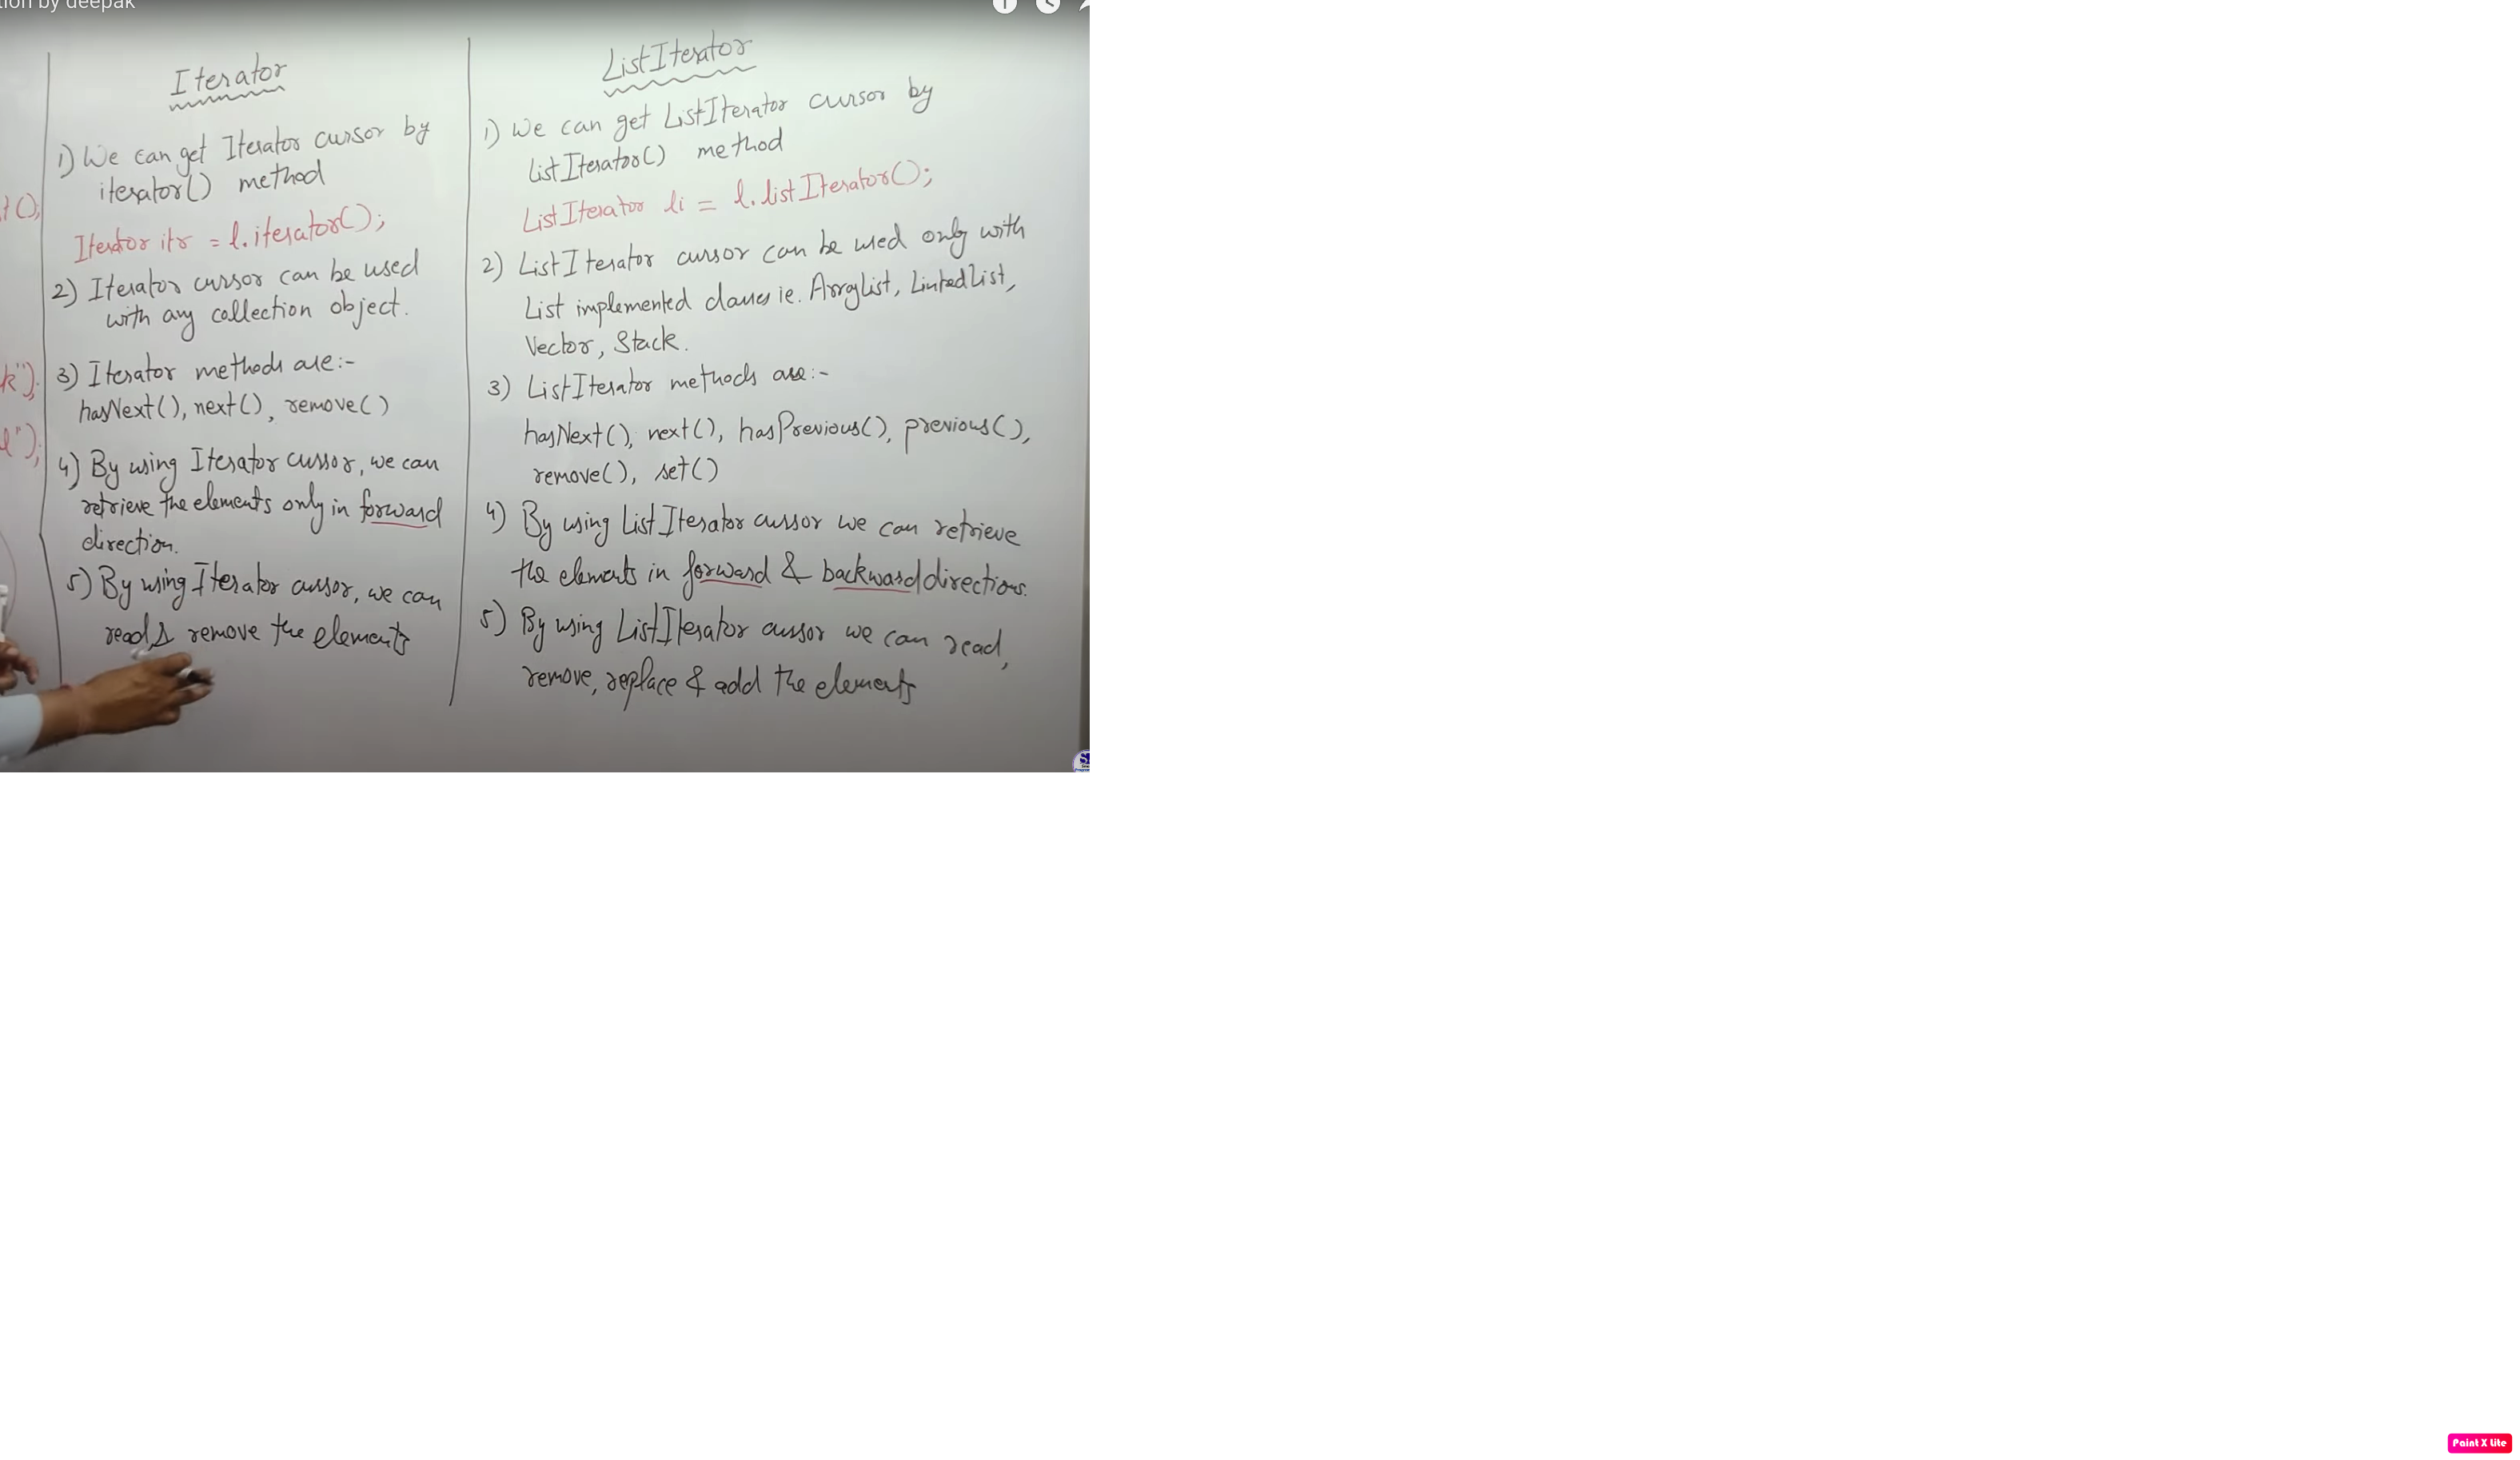 tion by deepak
Iterator
1) We can get Iterator cursor by
iterator() method
Iterator itr = l.iterator();
2) Iterator cursor can be used
with any collection object.
3) Iterator methods are:-
hasNext(), next(), remove()
4) By using Iterator cursor, we can
retrieve the elements only in forward
direction.
5) By using Iterator cursor, we can
read & remove the elements
ListIterator
1) We can get ListIterator cursor by
listIterator() method
ListIterator li = l.listIterator();
2) ListIterator cursor can be used only with
List implemented classes ie. ArrayList, LinkedList,
Vector, Stack.
3) ListIterator methods are:-
hasNext(), next(), hasPrevious(), previous(),
remove(), set()
4) By using ListIterator cursor we can retrieve
the elements in forward & backward directions.
5) By using ListIterator cursor we can read,
remove, replace & add the elements
t();
k");
l");
Paint X Lite